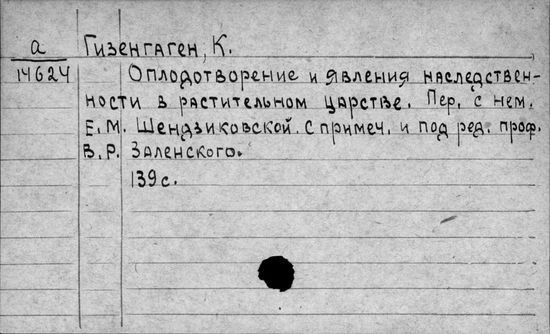 а Гизенгаген, К.
14624 Оплодотворение и явления наследствен-
ности в растительном царстве. Пер. с нем.
Е. М. Шендзиковской. С примеч. и под ред. проф.
В. Р. Заленского.
139 с.